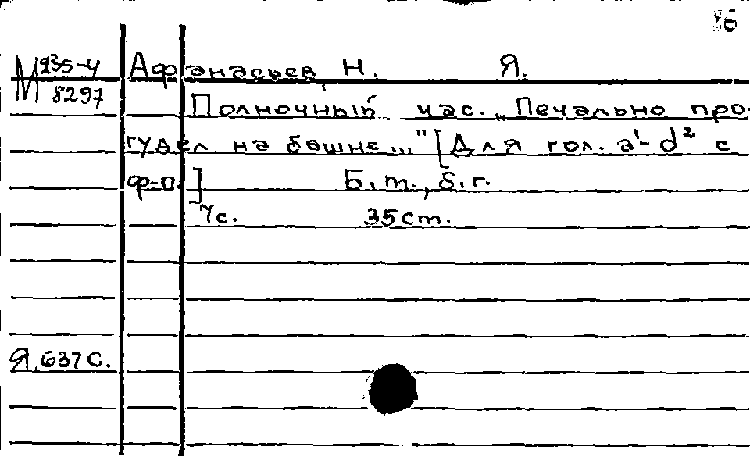 М 235-4
8297
Афанасьев, Н. Я.
Полночный час. „Печально про-
гудел на башне..." [Для гол. a¹-d² с
ф-п.] Б.m., б.г.
7с. 35см.
Я.637с.